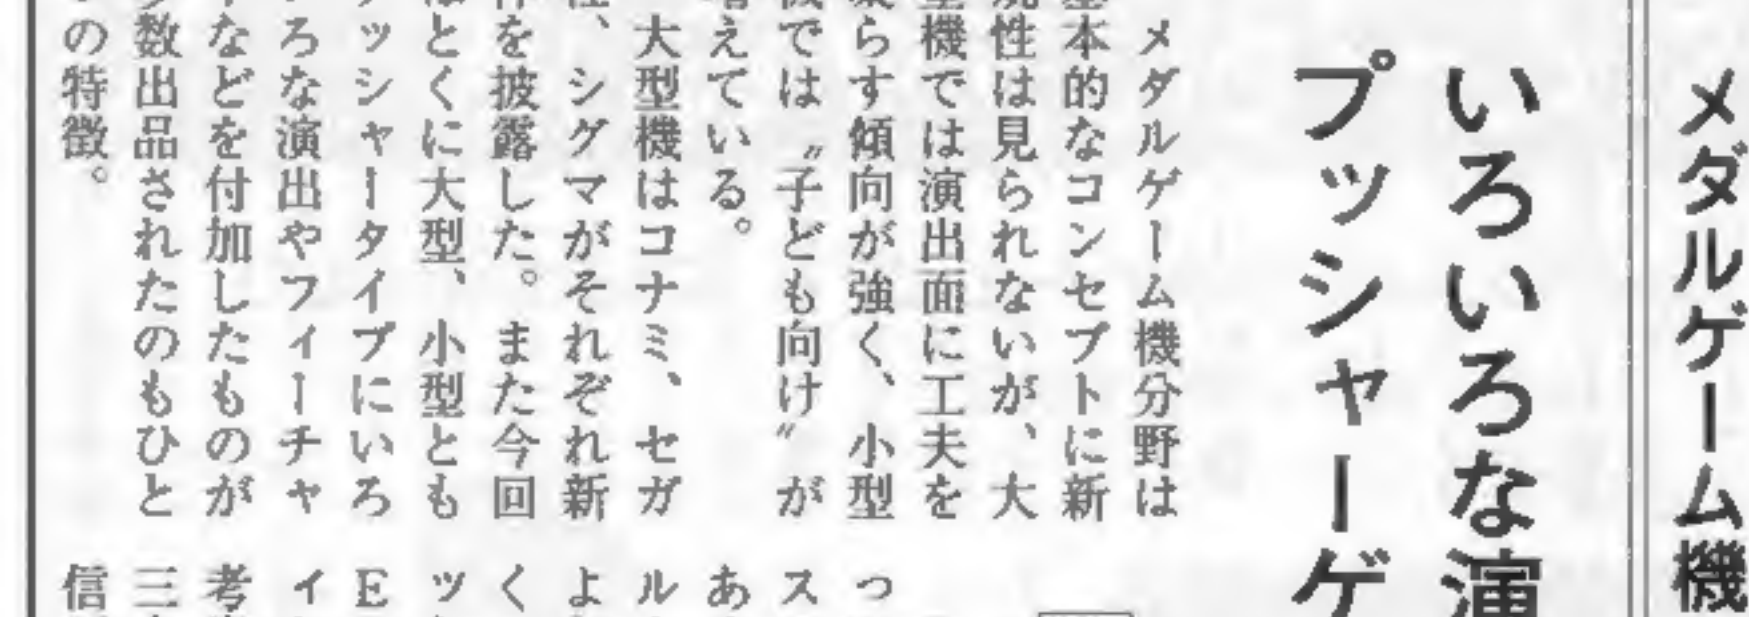 メダルゲーム機
いろいろな演
プッシャーゲ
メダルゲーム機分野は
基本的なコンセプトに新
規性は見られないが、大
型機では演出面に工夫を
凝らす傾向が強く、小型
機では〝子ども向け〟が
増えている。
大型機はコナミ、セガ
社、シグマがそれぞれ新
作を披露した。また今回
はとくに大型、小型とも
プッシャータイプにいろ
いろな演出やフィーチャ
ーなどを付加したものが
多数出品されたのもひと
つの特徴。
っ
ス
あ
ル
よ
く
ッ
E
ィ
考
三
信